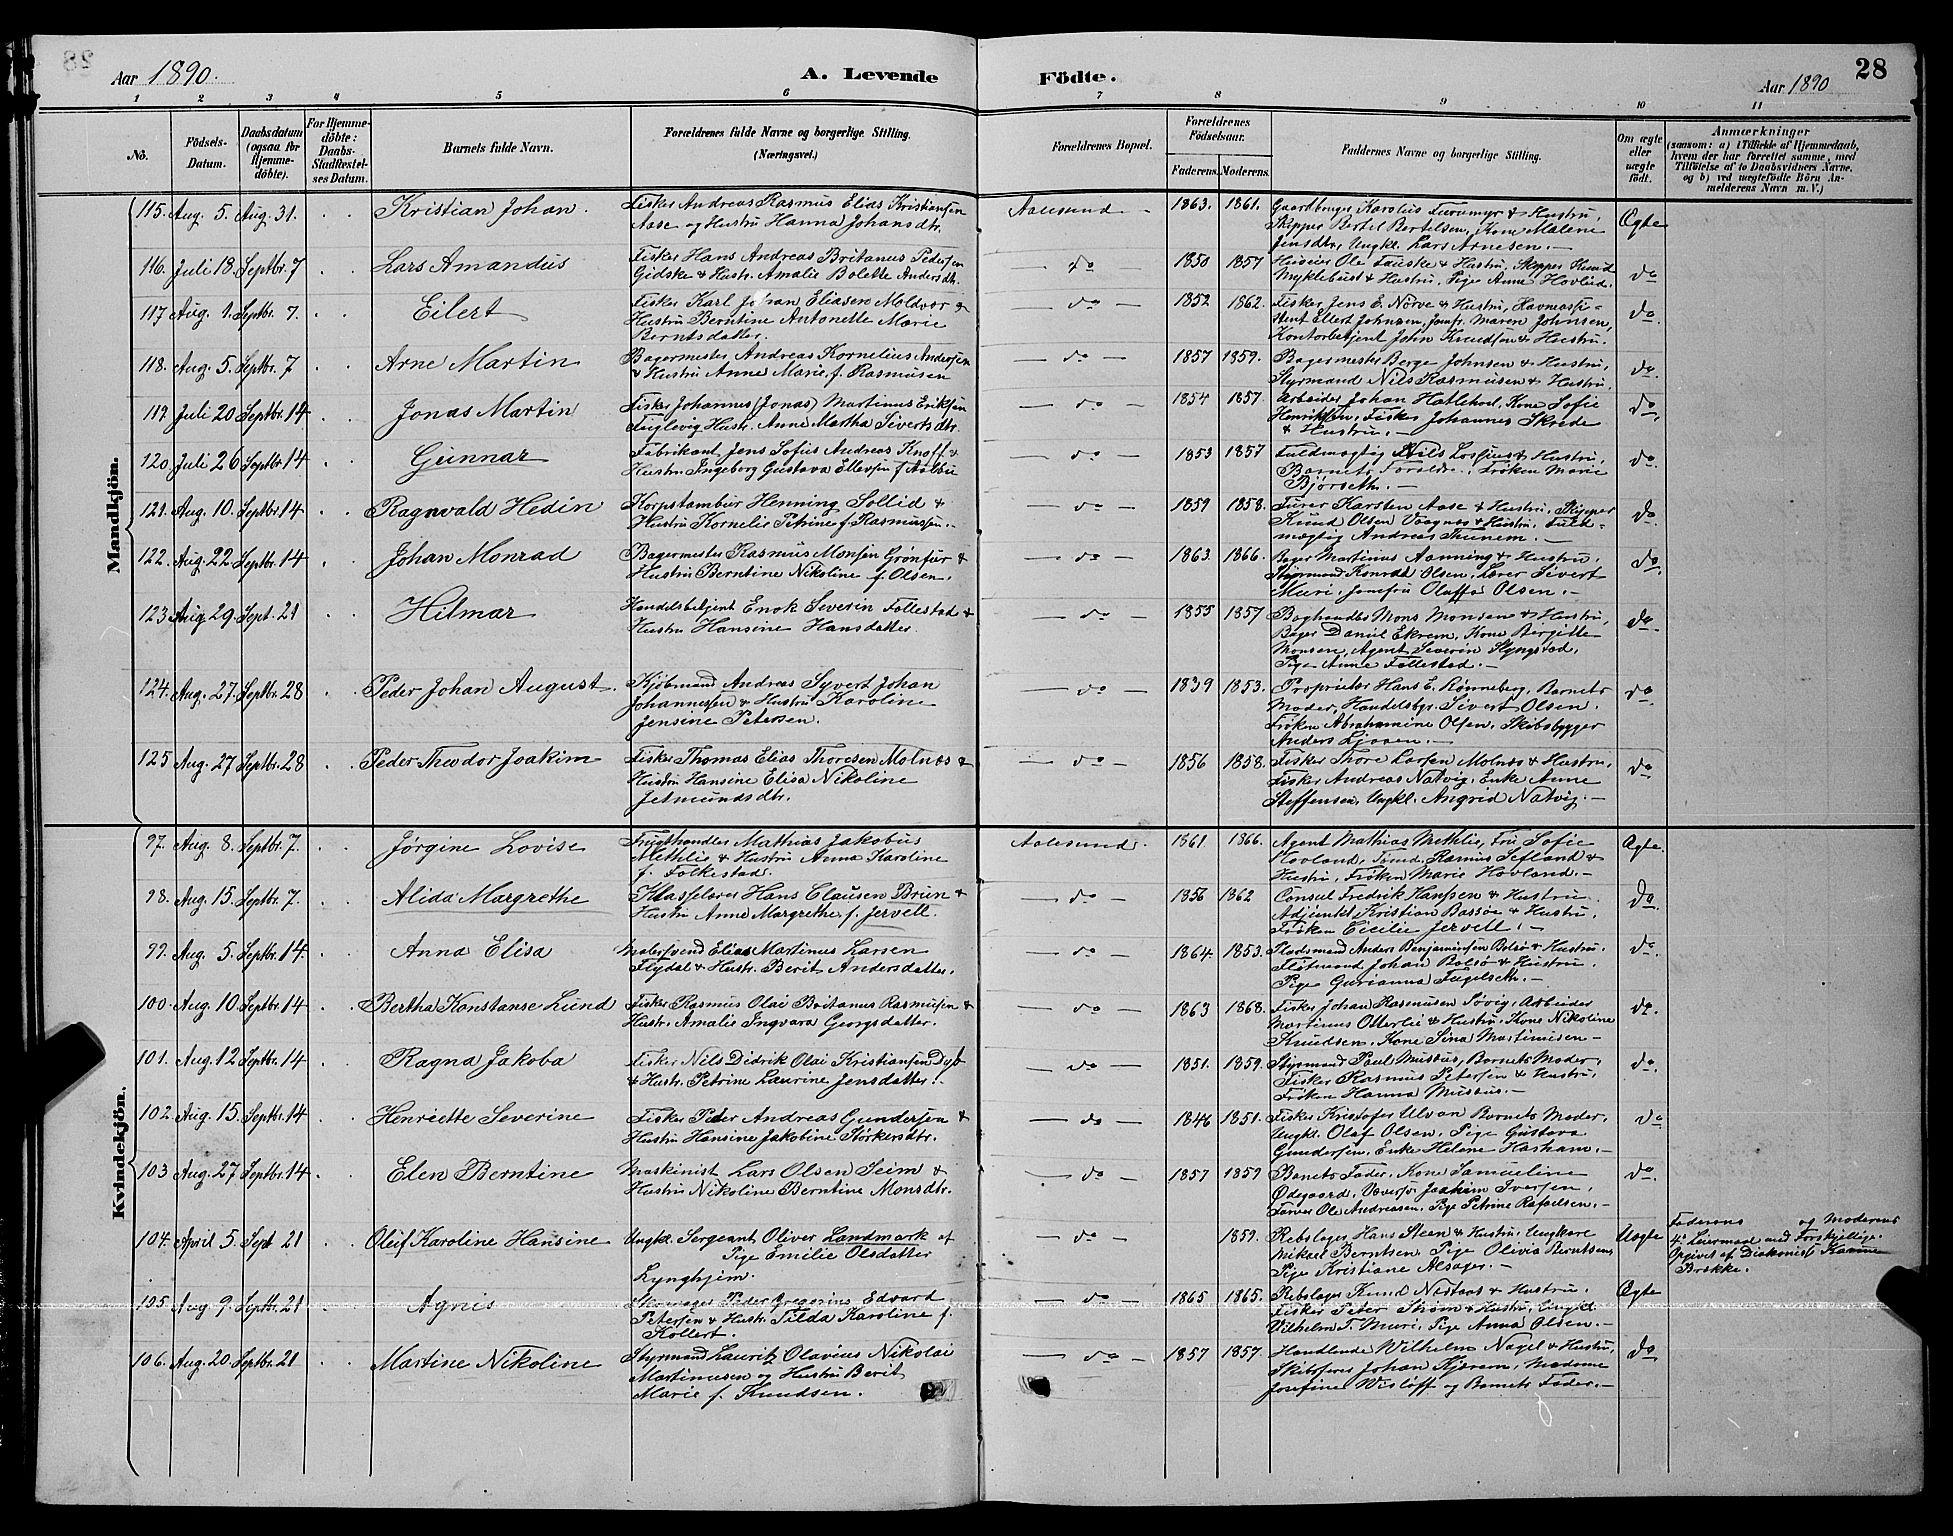 28
Aar 1890.
A. Levende Födte.
Aar 1890
28
1 2 3 4 5 6 7 8 9 10 11
No.
Födsels-Datum.
Daabsdatum (ogsaa for Hjemme-döbte).
For Hjemme-döbte: Daabs-Stadfæstel-ses Datum.
Barnets fulde Navn.
Forældrenes fulde Navne og borgerlige Stilling. (Næringsvei.)
Forældrenes Bopæl.
Forældrenes Födselsaar.
Faderens. Moderens.
Faddernes Navne og borgerlige Stilling.
Om ægte eller uægte födt.
Anmærkninger
(saasom: a) i Tilfælde af Hjemmedaab, hvem der har forrettet samme, med Tilföielse af to Daabsvidners Navne, og b) ved uægtefödte Börn An-melderens Navn m. V.)
Mandkjön.
115. Aug. 5. Aug. 31. Kristian Johan. Fisker Andreas Rasmus Elias Kristiansen Aalesund 1863. 1861. Gaardbruger Karolus Furumyr & Hustru, Ægte
Aase og Hustru Hanna Johansdtr. Skipper Bertel Bertelsen, Kone Malene
Jensdtr, Ungkl. Lars Arnesen.
116. Juli 18. Septbr. 7 Lars Amandus Fisker Hans Andreas Britanus Pedersen do 1850 1857 Ole Fauske & Hustru, Skipper Knud do
Gidske & Hustr. Amalie Bolette Andersdtr. Myklebust & Hustru, Pige Anne Hovlid.
117 Aug. 1. Septbr. 7. Eilert Fisker Karl Johan Eliasen Moldvær & do 1852 1862. Fisker Jens E. Nørve & Hustru, Havnassi- do.
Hustru Berntine Antonette Marie stent Ellert Johnsen, Jomfr. Maren Johnsen,
Berntsdatter. Kontorbetjent John Knudsen & Hustru.
118. Aug. 5. Septbr. 7 Arne Martin Bagermester Andreas Kornelius Andersen do 1857 1859. Bagermester Berge Johnsen & Hustru, do.
& Hustru Anne Marie f. Rasmusen Styrmand Nils Rasmusen & Hustru.
119. Juli 20 Septbr. 14 Jonas Martin Fisker Johannes (Jonas) Martinus Eriksen do 1854 1857. Arbeider Johan Hatlehoel, Kone Sofie do.
Fuglevig Hustr. Anne Martha Sivertsdtr. Henriksen, Fisker Johannes Skrede
& Hustru.
120. Juli 26 Septbr. 14 Gunnar Fabrikant Jens Sofus Andreas Knoff & do 1853 1857 Fuldmægtig Nils & Hustru, do.
Hustru Ingeborg Gustava Ellevsen f. Aalbu Barnets Forældre, Frøken Marie
Bjørseth.
121. Aug. 10. Septbr. 14 Ragnvald Hedin Korpstambur Henning Sollid & do 1859 1858. Furer Karsten Aase & Hustru, Skipper do.
Hustru Kornelie Petrine f. Rasmussen. Knud Olsen Vaagnes & Hustru, Fuld-
mægtig Andreas Thunem.
122. Aug. 22. Septbr. 14 Johan Monrad Bagermester Rasmus Monsen Grønfur & do 1863. 1866. Bager Martinus Aanning & Hustru, do.
Hustru Berntine Nikoline f. Olsen. Styrmand Konrad Olsen, Lærer Sivert
Muri, Jomfru Oluffa Olsen.
123 Aug. 29. Sept. 21 Hilmar Handelsbetjent Enok Severin Follestad & do 1855 1857 Boghandler Mons Monsen & Hustru, do.
Hustru Hansine Hansdatter. Bager Daniel Ekrem, Kone Bergitte
Monsen, Agent Severin Slyngstad,
Pige Anne Follestad.
124. Aug. 27. Septbr. 28 Peder Johan August. Kjøbmand Andreas Syvert Johan do 1839 1853. Proprietær Hans E. Rønneberg, Barnets do
Johannessen & Hustru Karoline Moder, Handelsbgr. Sivert Olsen.
Jensine Petersen. Frøken Abrahamine Olsen, Skibsbygger
Anders Ljosen.
125 Aug. 27 Septbr. 28 Peder Theodor Joakim Fisker Thomas Elias Thoresen Molnæs & do 1856 1858. Fisker Thore Larsen Molnæs & Hustru, do
Hustru Hansine Elisa Nikoline Fisker Andreas Natvig, Enke Anne
Jetmundsdtr. Steffensen, Ungkl. Angrid Natvig.
Kvindekjön.
97. Aug. 8. Septbr. 7. Jørgine Lovise Frugthandler Mathias Jakobus Aalesund. 1861. 1866. Agent Mathias Methlie, Fru Sofie Ægte.
Methlie & Hustru Anna Karoline Hovland, Rasmus Sefland &
f. Folkestad. Hustru, Frøken Marie Hovland.
98. Aug. 15. Septbr. 7. Alida Margrethe Klasselærer Hans Clausen Brun & do 1856 1862 Consul Fredrik Hanssen & Hustru. do.
Hustru Anne Margrethe f. Jervell. Adjunkt Kristian Bassøe & Hustru,
Frøken Cicilie Jervell.
99. Aug. 5. Septbr. 14. Anna Elisa Malersvend Elias Martinus Larsen do 1864. 1853. Pladsmand Anders Benjaminsen Bolsø & Hustru. do.
Flydal & Hustr. Berit Andersdatter. Fløtmand Johan Bolsø & Hustru.
Pige Gurianna Fuglseth.
100. Aug. 10 Septbr. 14 Bertha Konstanse Lund Fisker Rasmus Olai Britanus Rasmusen & do 1863 1868. Fisker Johan Rasmusen Søvig, Arbeider do.
Hustr. Amalie Ingvara Georgsdatter. Martinus Otterlie & Hustru, Kone Nikoline
Knudsen, Kone Sina Martinusen
101. Aug. 12 Septbr. 14 Ragna Jakoba Fisker Nils Didrik Olai Kristiansen Dyb do 1851. 1859. Styrmand Paul Musæus, Barnets Moder, do.
& Hustr. Petrine Laurine Jensdatter. Fisker Rasmus Petersen & Hustru,
Frøken Hanna Musæus.
102. Aug. 15. Septbr. 14 Henriette Severine Fisker Peder Andreas Gundersen & do 1846 1851. Fisker Kristofer Ulvan Barnets Moder, do
Hustru Hansine Jakobine Størkersdtr. Ungkl. Olaf Olsen, Pige Gustava
Gundersen, Enke Helene Harham.
103 Aug. 27 Septbr. 14 Elen Berntine Maskinist Lars Olsen Seim & do 1857 1859 Banets Fader, Kone Samueline do.
Hustru Nikoline Berntine Monsdtr. Ødegaard, Joakim Iversen,
Farver Ole Andreassen, Pige Petrine Rafaelsen.
104. April 5. Sept 21 Oleif Karoline Hansine Ungkl. Sergeant Oliver Landmark af do 1859. Rebslager Hans Steen & Hustru, Ungkare Uægte
Pige Emilie Olsdatter Mikael Berntsen, Pige Olivia Berntsen,
Lynghjem. Pige Kristiane Alsager.
Faderens og Moderens 4de Leiermaal med Forskjellige. Opgivet af Diakonisse Karine Brække.
105. Aug 9. Septbr. 21 Agnis Skomager Peder Gregorius Edvard do 1865 1865. Rebslager Knud Nastaas & Hustru, Ægte
Petersen & Hustr. Tilda Karoline f. Fisker Peter Strøm & Hustru, Ungkl
Kollert. Vilhelm T. Muri, Pige Anna Olsen.
106. Aug. 20. Septbr. 21 Martine Nikoline Styrmand Lauritz Olavius Nikolai do 1857 1857. Handlende Wilhelm Nagel & Hustru, do
Martinusen og Hustru Berit Skibsfører Johan Kjerem, Madame
Marie f. Knudsen. Josefine Wisløff og Barnets Fader.